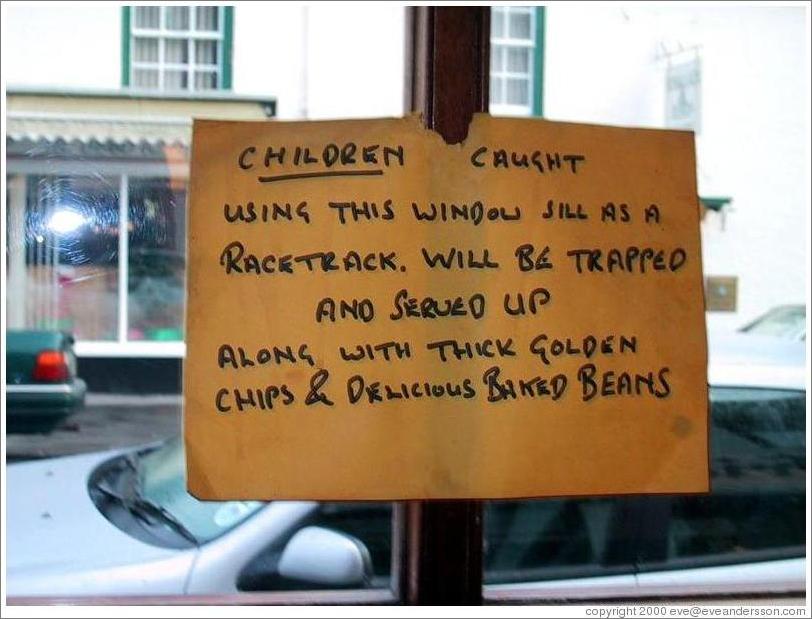 CHILDREN CAUGHT
USING THIS WINDOW SILL AS A
RACETRACK. WILL BE TRAPPED
AND SERVED UP
ALONG WITH THICK GOLDEN
CHIPS & DELICIOUS BAKED BEANS
copyright 2000 eve@eveandersson.com